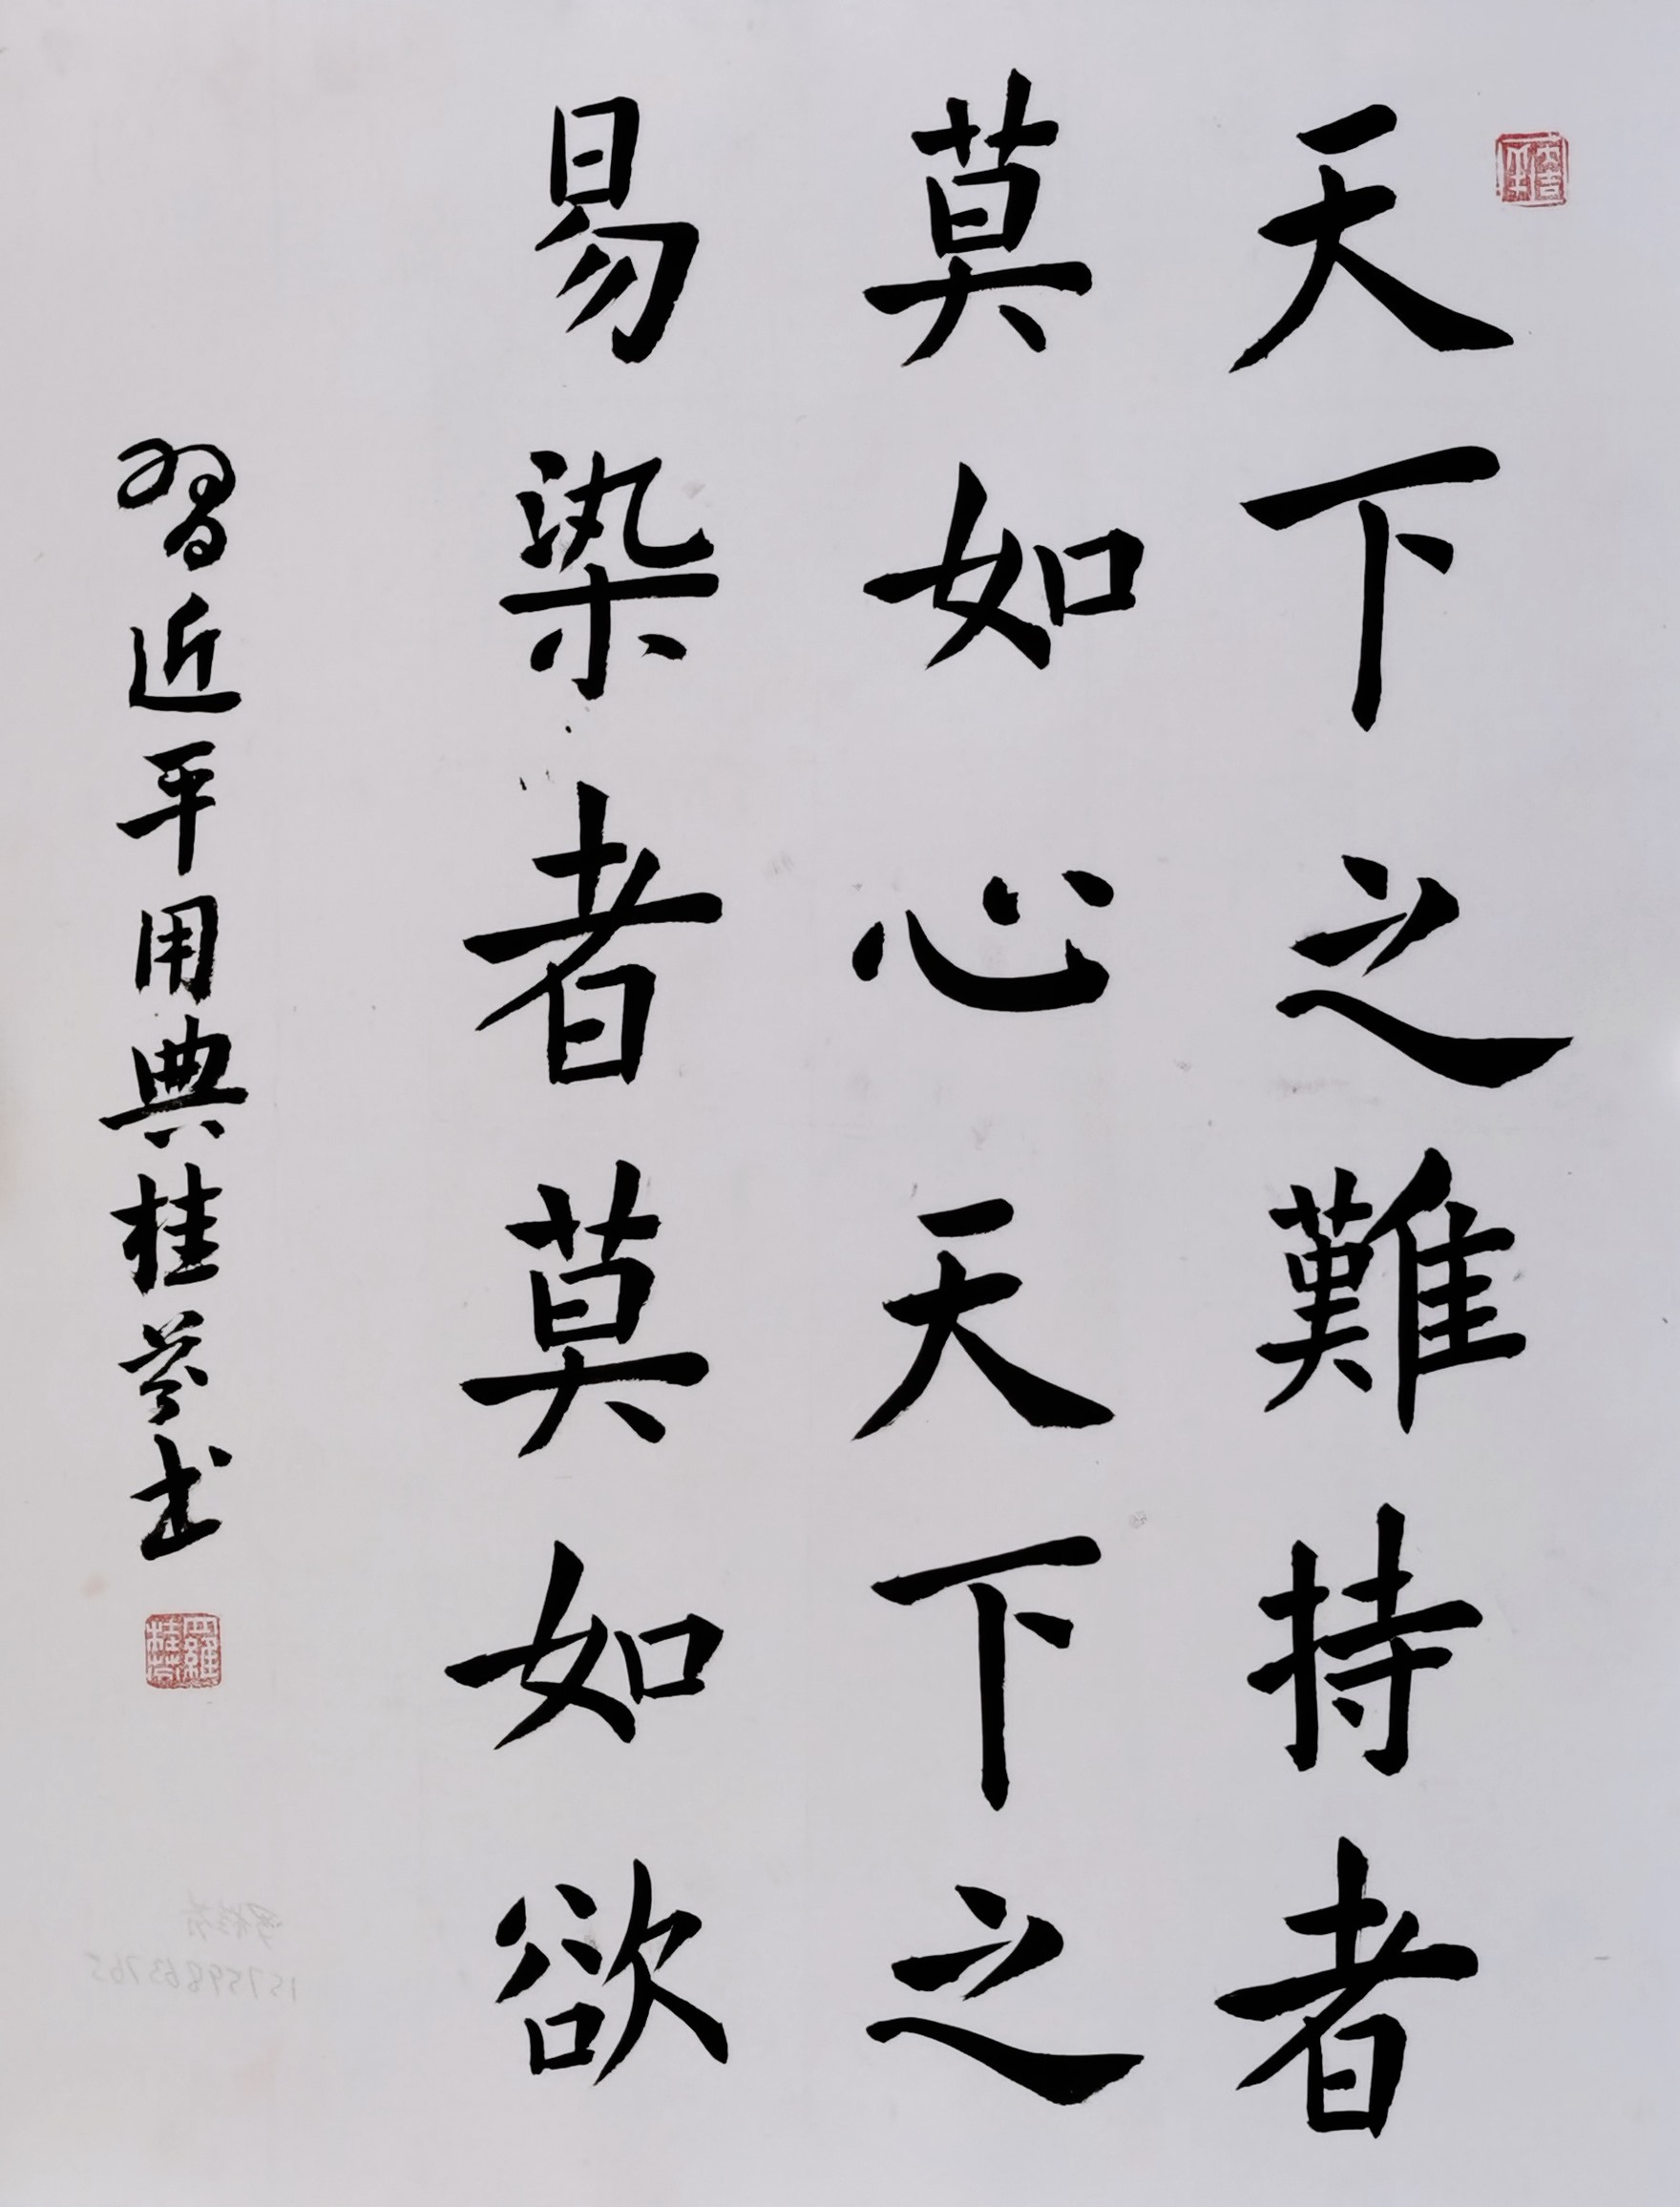 天下之難持者
莫如心天下之
易染者莫如欲
習近平用典桂芬书